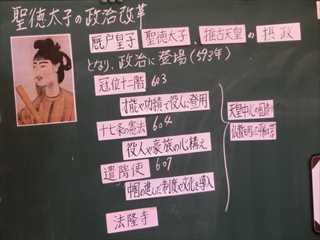 聖徳太子の政治改革
厩戸皇子 聖徳太子 推古天皇の摂政
となり、政治に登場(593年)
冠位十二階 603
才能や功績で役人に登用
十七条の憲法 604
役人や豪族の心構え
遣隋使 607
中国の進んだ制度や文化を導入
法隆寺
天皇中心の